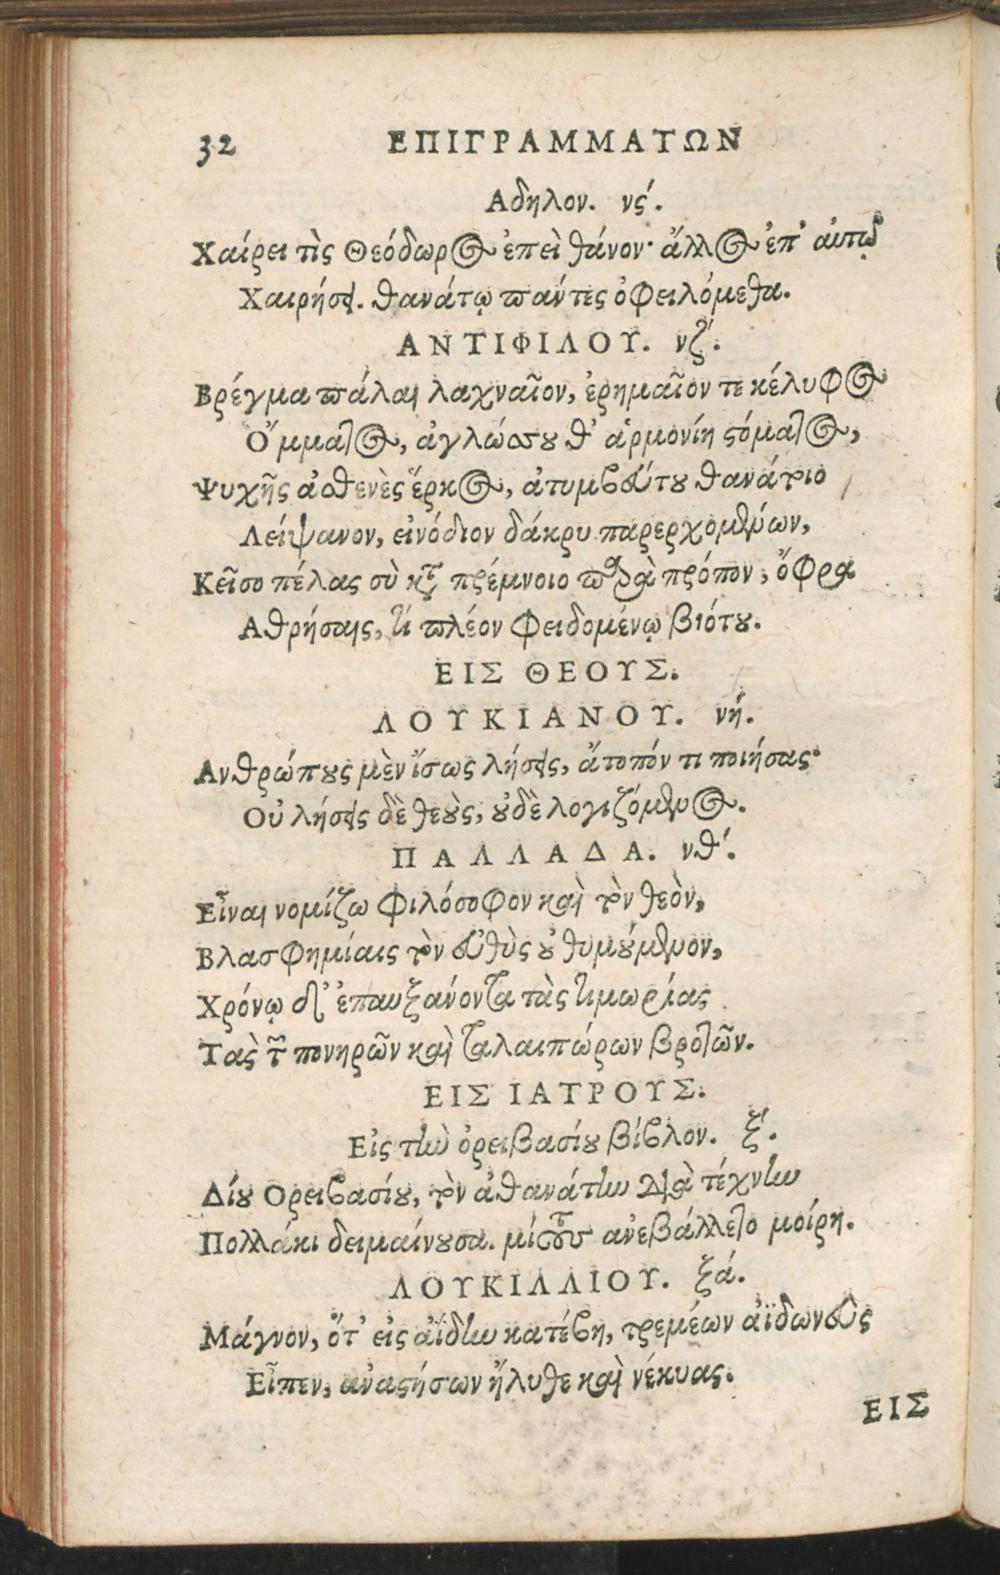 32 ΕΠΙΓΡΑΜΜΑΤΩΝ
Αδηλον. νϛ΄.
Χαίρει τὶς Θεόδωρος ἐπεὶ θάνον· ἄλλος ἐπ᾽ αὐτῷ
Χαιρήσει. θανάτῳ πάντες ὀφειλόμεθα.
ΑΝΤΙΦΙΛΟΥ. νζ΄.
Βρέγμα πάλαι λαχναῖον, ἐρημαῖον τε κέλυφος
Ὄμματος, ἀγλώσσου θ᾽ ἁρμονίη στόματος,
Ψυχῆς ἀσθενὲς ἕρκος, ἀτυμβεύτου θανάτοιο
Λείψανον, εἰνόδιον δάκρυ παρερχομένων,
Κεῖσο πέλας σὺ κατὰ πρέμνοιο παρὰ πρόπον, ὄφρα
Αθρήσαις, τί πλέον φειδομένῳ βιότου.
ΕΙΣ ΘΕΟΥΣ.
ΛΟΥΚΙΑΝΟΥ. νή.
Ανθρώπους μὲν ἴσως λήσεις, ἄτοπόν τι ποιήσας·
Οὐ λήσεις δὲ θεοὺς, οὐδὲ λογιζόμενος.
ΠΑΛΛΑΔΑ. νθ΄.
Εἶναι νομίζω φιλόσοφον καὶ τὸν θεὸν,
Βλασφημίαις τὸν εὐθὺς οὐ θυμούμενον,
Χρόνῳ δ᾽ ἐπαυξάνοντα τὰς τιμωρίας
Τὰς τῶν πονηρῶν καὶ ταλαιπώρων βροτῶν.
ΕΙΣ ΙΑΤΡΟΥΣ.
Εἰς τὴν ὀρειβασίου βίβλον. ξ΄.
Δίου Ορειβασίου, τὸν ἀθανάτην διὰ τέχνην
Πολλάκι δειμαίνουσα. μίτους ἀνεβάλλετο μοίρη.
ΛΟΥΚΙΛΛΙΟΥ. ξά.
Μάγνον, ὅτ᾽ εἰς ἀΐδην κατέβη, τρεμέων ἀϊδωνεὺς
Εἶπεν, ἀναστήσων ἤλυθε καὶ νέκυας.
ΕΙΣ